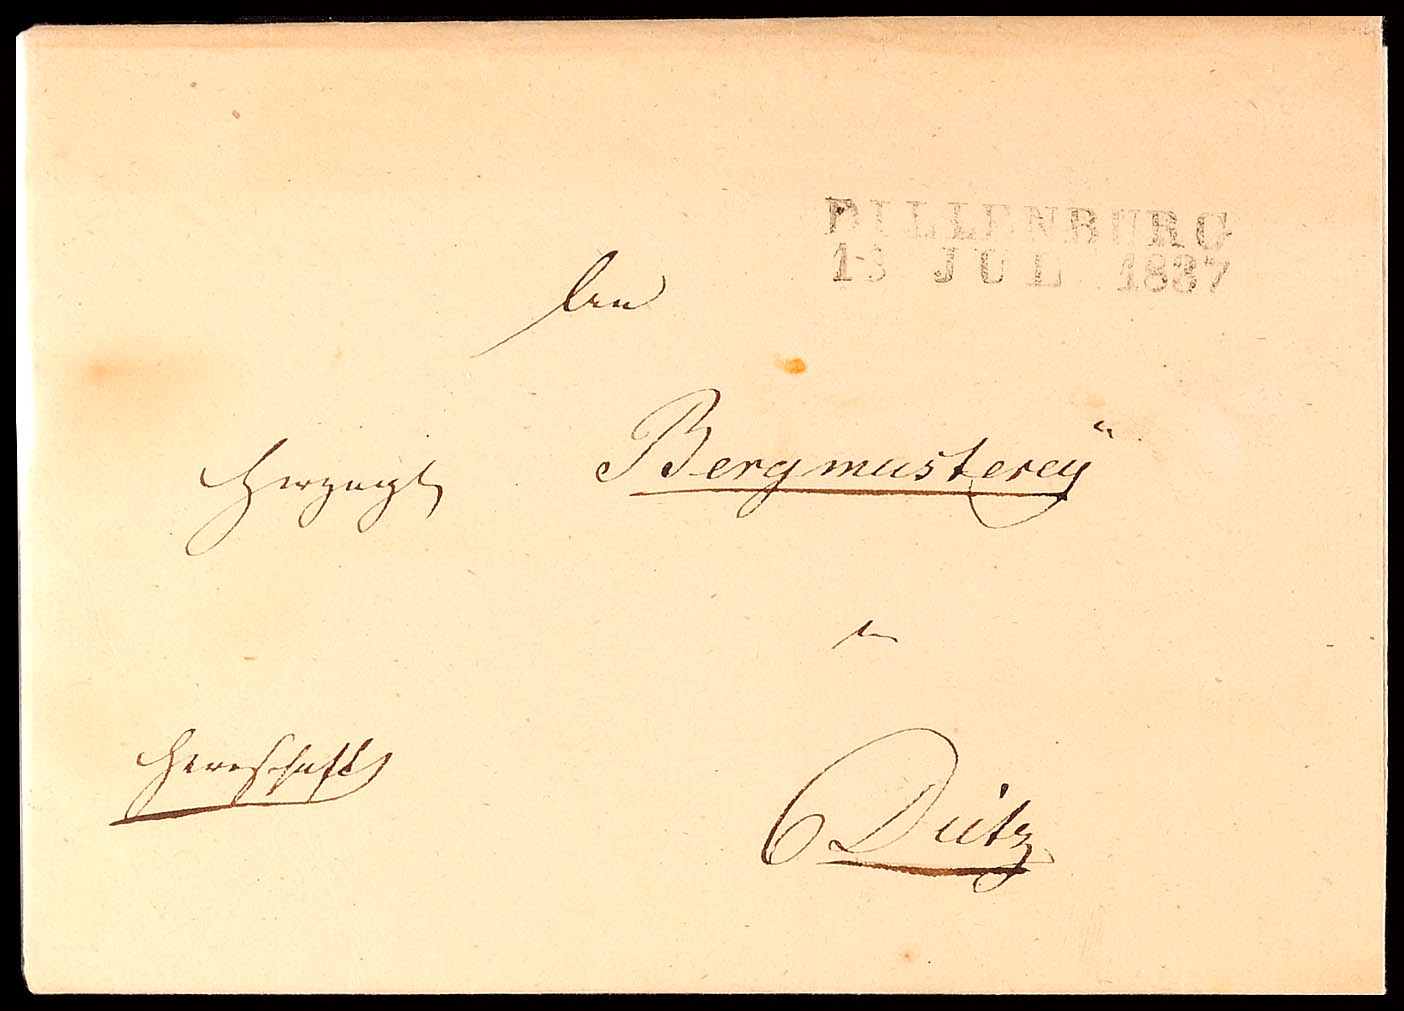 DILLENBURG
13 JUL 1837
An
Herzogl Bergmeisterey
in
Herrschaftl
Dietz